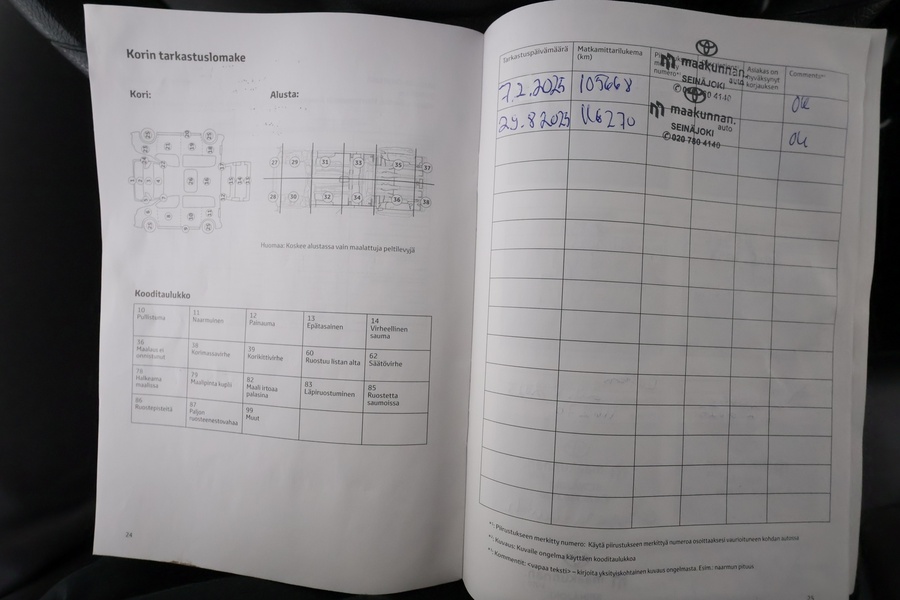 Korin tarkastuslomake
Kori:
Alusta:
27 29 31 33 35 37
28 30 32 34 36 38
Huomaa: Koskee alustassa vain maalattuja peltilevyjä
Kooditaulukko
10 11 12 13 14
Pullistuma Naarmuinen Painauma Epätasainen Virheellinen
sauma
36 38 39 60 62
Maalaus ei Korimassavirhe Korikittivirhe Ruostuu listan alta Säätövirhe
onnistunut
76 79 82 83 85
Halkeama Maalipinta kuplii Maali irtoaa Läpiruostuminen Ruostetta
maalissa palasina saumoissa
86 87 99
Ruostepisteitä Paljon Muut
ruosteenestovahaa
24
Tarkastuspäivämäärä Matkamittarilukema
(km)
numero
Asiakas on
hyväksynyt
korjauksen
Comments*³
7.2.2025 105668 OK
maakunnan.
auto
SEINÄJOKI
29.8.2025 116270 OK
maakunnan.
auto
SEINÄJOKI
020 780 4140
*¹: Piirustukseen merkitty numero: Käytä piirustukseen merkittyä numeroa osoittaaksesi vaurioituneen kohdan autossa
*²: Kuvaus: Kuvaile ongelma käyttäen kooditaulukkoa
*³: Kommentit: <vapaa teksti> – kirjoita yksityiskohtainen kuvaus ongelmasta. Esim.: naarmun pituus.
25